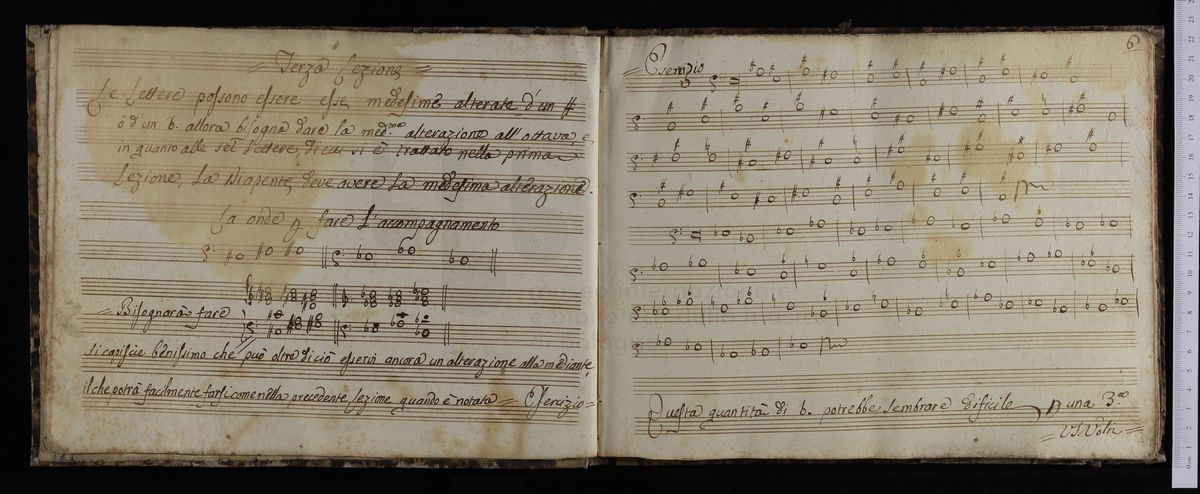 Terza Lezione
Le Lettere possono essere esse medesime alterate d'un #
ò d'un b. allora bisogna dare la med.ma alterazione all'ottava, e
in quanto alle sei Lettere, di cui si è trattato nella prima
Lezione, La Diapente deve avere La medesima alterazione.
La onde p fare L'acompagnamento
Bisognarà fare
si capiscie benissimo che può oltre di ciò esservi ancora un alterazione alla mediante,
il che potrà facilmente farsi come nella precedente Lezione quando è notata Esercizio
6
Esercizio
Questa quantità di b. potrebbe sembrare dificile p una 3.
V.S. Volti